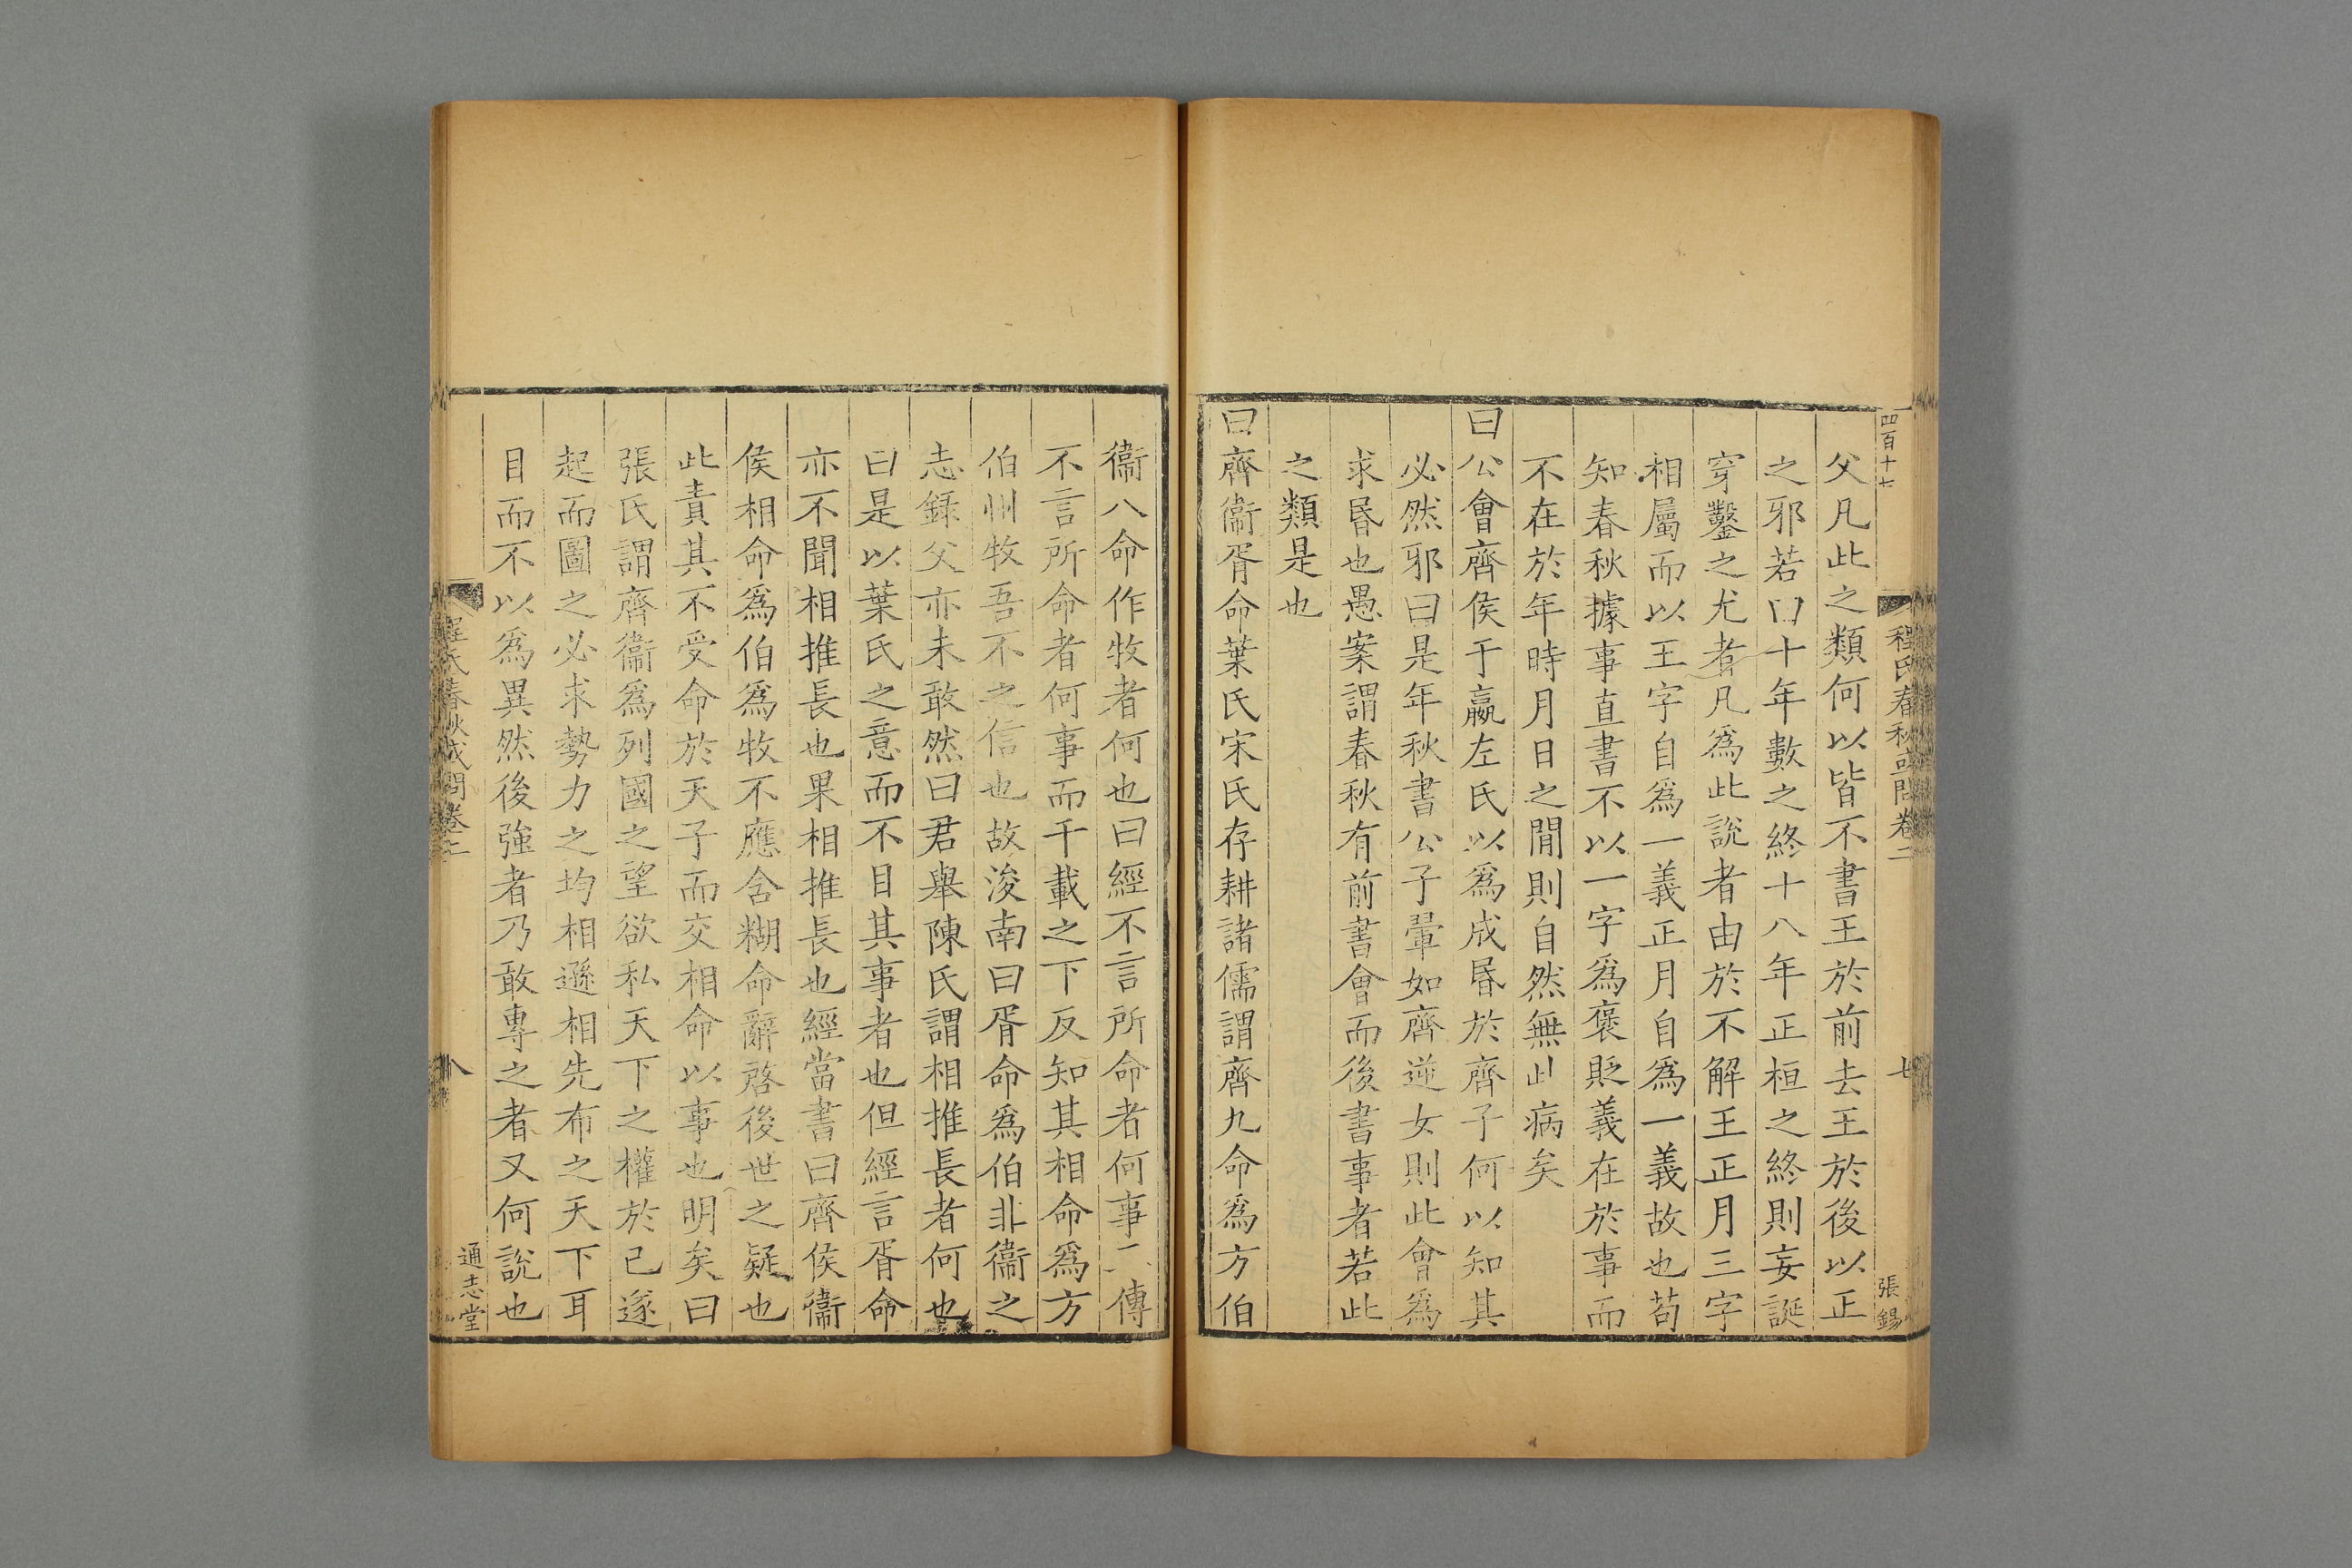 四百十七
程氏春秋或問卷二
七
張錫
父凡此之類何以皆不書王於前去王於後以正
之邪若曰十年數之終十八年正桓之終則妄誕
穿鑿之尤者凡爲此說者由於不解王正月三字
相屬而以王字自爲一義正月自爲一義故也苟
知春秋據事直書不以一字爲褒貶義在於事而
不在於年時月日之間則自然無此病矣
曰公會齊侯于嬴左氏以爲成昬於齊子何以知其
必然邪曰是年秋書公子翬如齊逆女則此會爲
求昬也愚案謂春秋有前書會而後書事者若此
之類是也
曰齊衞胥命葉氏宋氏存耕諸儒謂齊九命爲方伯
衞八命作牧者何也曰經不言所命者何事二傳
不言所命者何事而千載之下反知其相命爲方
伯州牧吾不之信也故浚南曰胥命爲伯非衞之
志錄父亦未敢然曰君舉陳氏謂相推長者何也
曰是以葉氏之意而不目其事者也但經言胥命
亦不聞相推長也果相推長也經當書曰齊侯衞
侯相命爲伯爲牧不應含糊命辭啓後世之疑也
此責其不受命於天子而交相命以事也明矣曰
張氏謂齊衞爲列國之望欲私天下之權於已遂
起而圖之必求勢力之均相遜相先布之天下耳
目而不以爲異然後強者乃敢專之者又何說也
程氏春秋或問卷二
八
通志堂